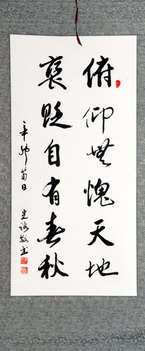 俯仰無愧天地
褒貶自有春秋
辛卯菊日